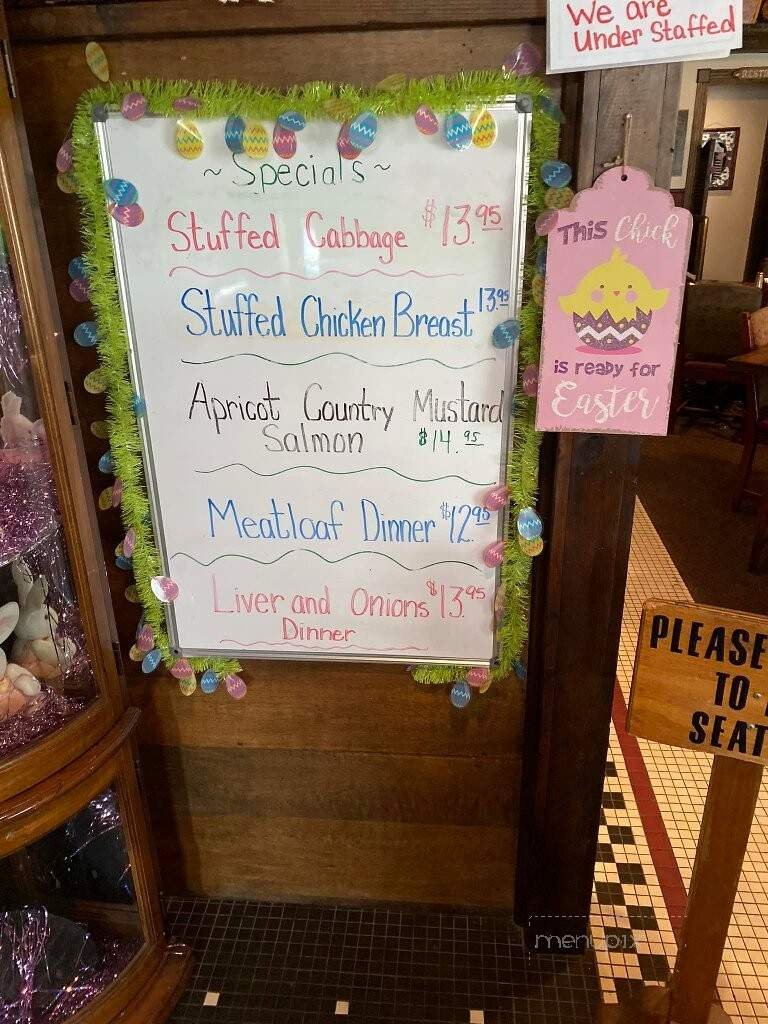 We are
Under Staffed
~ Specials ~
Stuffed Cabbage $13.95
Stuffed Chicken Breast 13.95
Apricot Country Mustard
Salmon $14.95
Meatloaf Dinner $12.95
Liver and Onions $13.95
Dinner
This Chick
is ready for
Easter
PLEASE
TO
SEAT
menupix